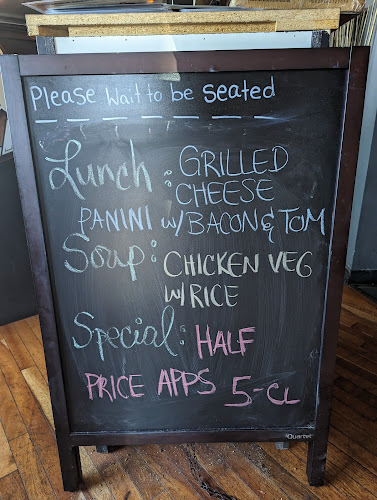 Please Wait to be Seated
Lunch: GRILLED
CHEESE
PANINI W/ BACON & TOM
Soup: CHICKEN VEG
W/ RICE
Special: HALF
PRICE APPS 5-CL
Quartet